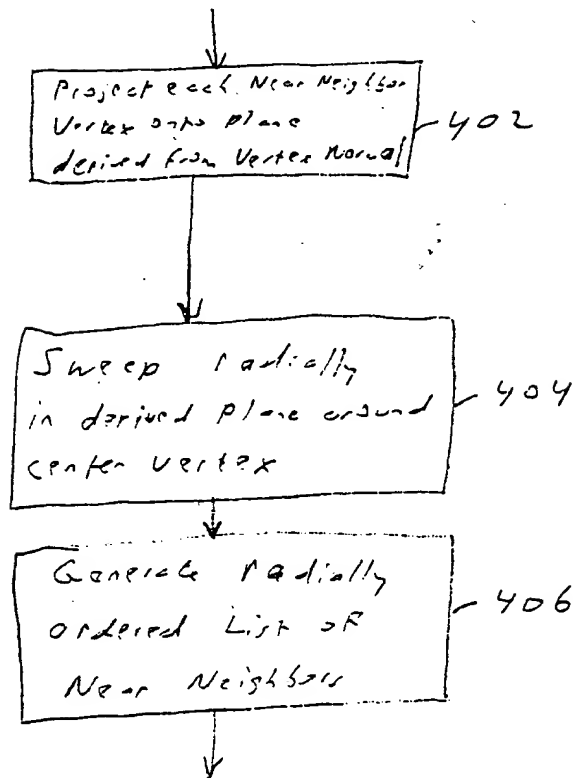 Project each Near Neighbor
Vertex onto plane
derived from Vertex Normal
402
Sweep radially
in derived plane around
center vertex
404
Generate radially
ordered List of
Near Neighbors
406